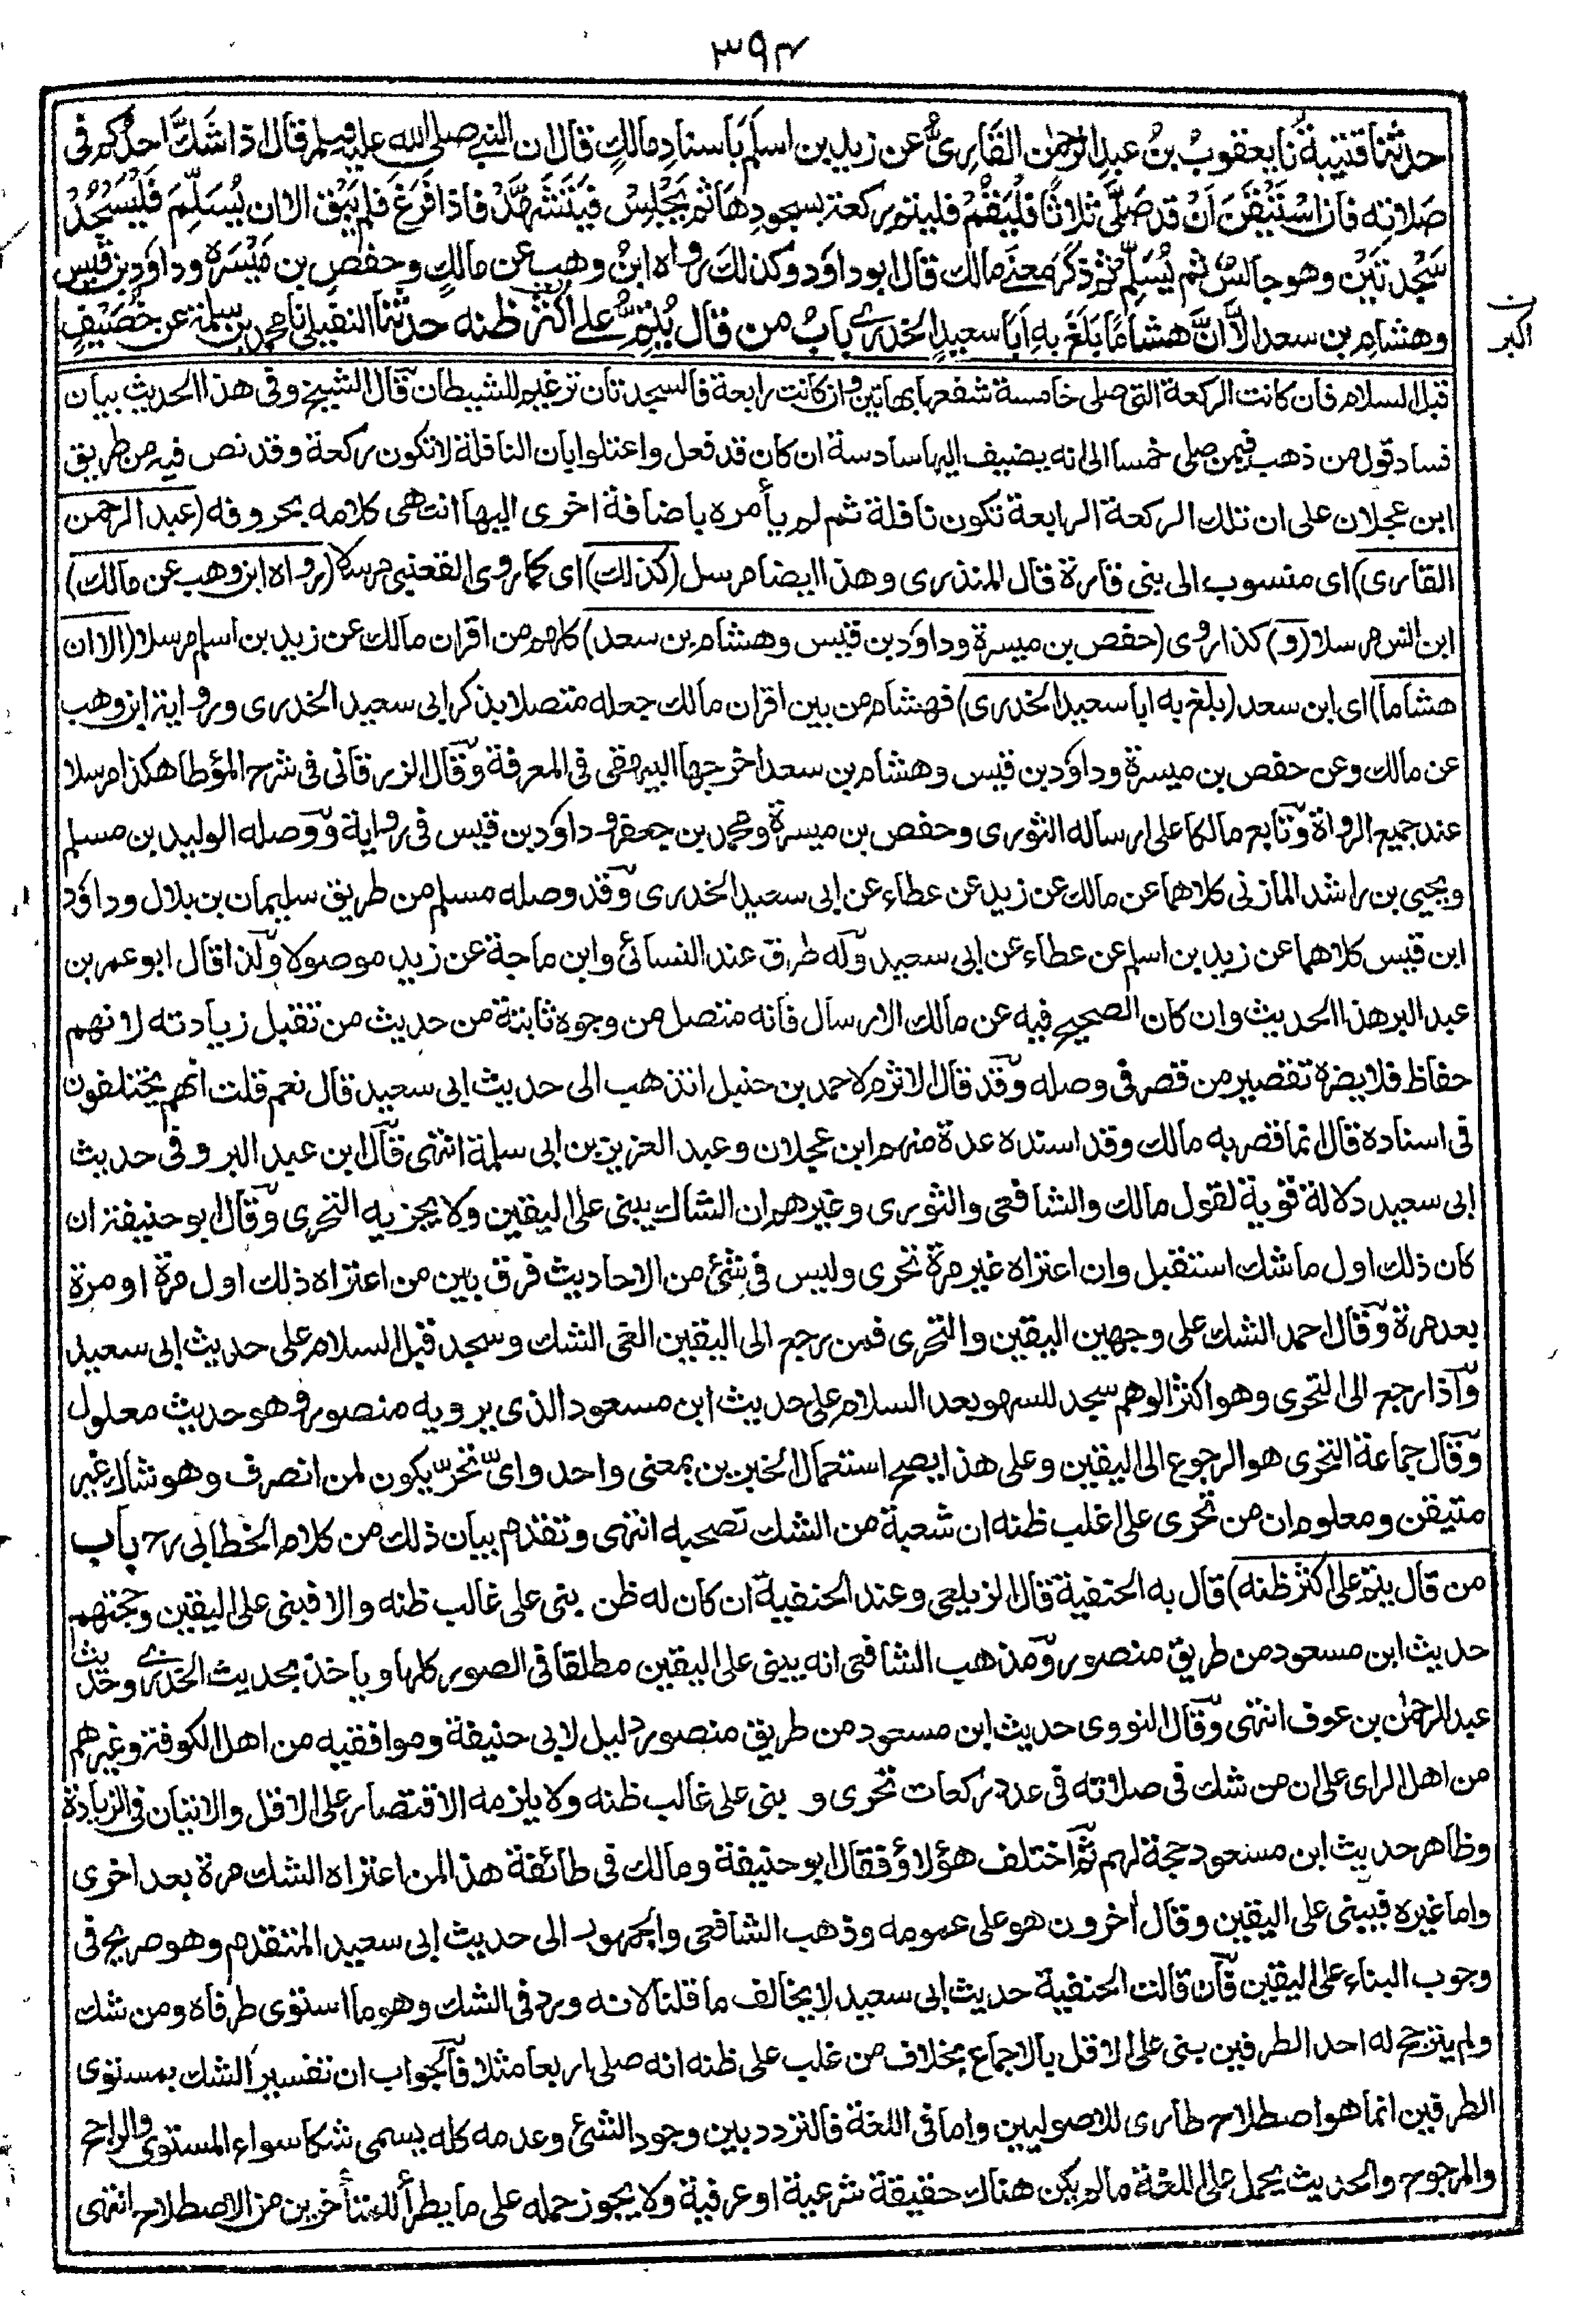 ٣٩٤
حدثنا قتيبة نا يعقوبُ بنُ عبدِ الرحمٰن القَارِىُّ عن زيدِ بن اسلَم بأسنادِ مالكٍ قال ان النبى صلى الله عليه وسلم قال اذا شَكَّ احدُكم فى
صَلاتِه فان اسْتَيْقَنَ اَنْ قد صَلَّى ثلاثًا فَلْيَقُمْ فليتم ركعة بسجودِهَا ثم يَجْلِسْ فيَتَشَهَّدْ فاذا فَرَغَ فلم يَبْقَ الا ان يُسَلِّمَ فَلْيَسْجُدْ
سَجْدتَيْنِ وهو جالسٌ ثم يُسَلِّمُ ثم ذكَرَ معنى مالك قال ابو داود وكذلك رواه ابنُ وهبٍ عن مالكٍ وحفصِ بن مَيْسَرة وداودَ بن قيس
وهشامِ بن سعد الَّا اَنَّ هشامًا بَلَغَ بهِ اَبَا سعيدٍ الخدرى بابُ من قال يُتِمُّ على اكثر ظنه حدثنا النفيلى نا محمد بن سلمة عن خُصَيْفٍ
ن
اكبر
قبل السلام فان كانت الركعة التى صلى خامسة شفعها بهاتين وان كانت رابعة فالسجدتان ترغيم للشيطان قال الشيخ وفى هذا الحديث بيان
فساد قول من ذهب فيمن صلى خمسا الى انه يضيف اليها سادسة ان كان قد فعل واعتلوا بان النافلة لا تكون ركعة وقد نص فيه من طريق
ابن عجلان على ان تلك الركعة الرابعة تكون نافلة ثم لم يأمره باضافة اخرى اليها انتهى كلامه بحروفه (عبد الرحمن
القارى) اى منسوب الى بنى قارة قال المنذرى وهذا ايضا مرسل (كذلك) اى كما روى القعنبى مرسلا (رواه ابن وهب عن مالك)
ابن انس مرسلا (و) كذا روى (حفص بن ميسرة وداود بن قيس وهشام بن سعد) كلهم من اقران مالك عن زيد بن اسلم مرسلا (الا ان
هشاما) اى ابن سعد (بلغ به ابا سعيد الخدرى) فهشام من بين اقران مالك جعله متصلا بذكر ابى سعيد الخدرى ورواية ابن وهب
عن مالك وعن حفص بن ميسرة وداود بن قيس وهشام بن سعد اخرجها البيهقى فى المعرفة وقال الزرقانى فى شرح المؤطا هكذا مرسلا
عند جميع الرواة وتابع مالكا على ارساله الثورى وحفص بن ميسرة ومحمد بن جعفر وداود بن قيس فى رواية ووصله الوليد بن مسلم
ويحيى بن راشد المازنى كلاهما عن مالك عن زيد عن عطاء عن ابى سعيد الخدرى وقد وصله مسلم من طريق سليمان بن بلال وداود
ابن قيس كلاهما عن زيد بن اسلم عن عطاء عن ابى سعيد وله طرق عند النسائى وابن ماجة عن زيد موصولا ولذا قال ابو عمر بن
عبد البر هذا الحديث وان كان الصحيح فيه عن مالك الارسال فانه متصل من وجوه ثابتة من حديث من تقبل زيادته لانهم
حفاظ فلا يضره تقصير من قصر فى وصله وقد قال الاثرم لاحمد بن حنبل اتذهب الى حديث ابى سعيد قال نعم قلت انهم يختلفون
فى اسناده قال انما قصر به مالك وقد اسنده عدة منهم ابن عجلان وعبد العزيز بن ابى سلمة انتهى قال ابن عبد البر وفى حديث
ابى سعيد دلالة قوية لقول مالك والشافعى والثورى وغيرهم ان الشاك يبنى على اليقين ولا يجزيه التحرى وقال ابو حنيفة ان
كان ذلك اول ما شك استقبل وان اعتراه غير مرة تحرى وليس فى شئ من الاحاديث فرق بين من اعتراه ذلك اول مرة او مرة
بعد مرة وقال احمد الشك على وجهين اليقين والتحرى فمن رجع الى اليقين الغى الشك وسجد قبل السلام على حديث ابى سعيد
واذا رجع الى التحرى وهو اكثر الوهم سجد للسهو بعد السلام على حديث ابن مسعود الذى يرويه منصور وهو حديث معلول
وقال جماعة التحرى هو الرجوع الى اليقين وعلى هذا يصح استعمال الخبرين بمعنى واحد واىّ تحرّ يكون لمن انصرف وهو شاك غير
متيقن ومعلوم ان من تحرى على اغلب ظنه ان شعبة من الشك تصحبه انتهى وتقدم بيان ذلك من كلام الخطابى رح باب
من قال يتم على اكثر ظنه) قال به الحنفية قال الزيلعى وعند الحنفية ان كان له ظن بنى على غالب ظنه والا فبنى على اليقين وحجتهم
حديث ابن مسعود من طريق منصور ومذهب الشافعى انه يبنى على اليقين مطلقا فى الصور كلها وياخذ بحديث الخدرى وحديث
عبد الرحمٰن بن عوف انتهى وقال النووى حديث ابن مسعود من طريق منصور دليل لابى حنيفة وموافقيه من اهل الكوفة وغيرهم
من اهل الراى على ان من شك فى صلاته فى عدد ركعات تحرى و بنى على غالب ظنه ولا يلزمه الاقتصار على الاقل والاتيان فى الزيادة
وظاهر حديث ابن مسعود حجة لهم ثم اختلف هؤلاء فقال ابو حنيفة ومالك فى طائفة هذا لمن اعتراه الشك مرة بعد اخرى
واما غيره فيبنى على اليقين وقال آخرون هو على عمومه وذهب الشافعى والجمهور الى حديث ابى سعيد المتقدم وهو صريح فى
وجوب البناء على اليقين فان قالت الحنفية حديث ابى سعيد لا يخالف ما قلنا لانه ورد فى الشك وهو ما استوى طرفاه ومن شك
ولم يترجح له احد الطرفين بنى على الاقل بالاجماع بخلاف من غلب على ظنه انه صلى اربعا مثلا فالجواب ان تفسير الشك بمستوى
الطرفين انما هو اصطلاح طارى للاصوليين واما فى اللغة فالتردد بين وجود الشئ وعدمه كله يسمى شكا سواء المستوى والراجح
والمرجوح والحديث يحمل على اللغة ما لم يكن هناك حقيقة شرعية او عرفية ولا يجوز حمله على ما يطرأ للمتأخرين من الاصطلاح انتهى